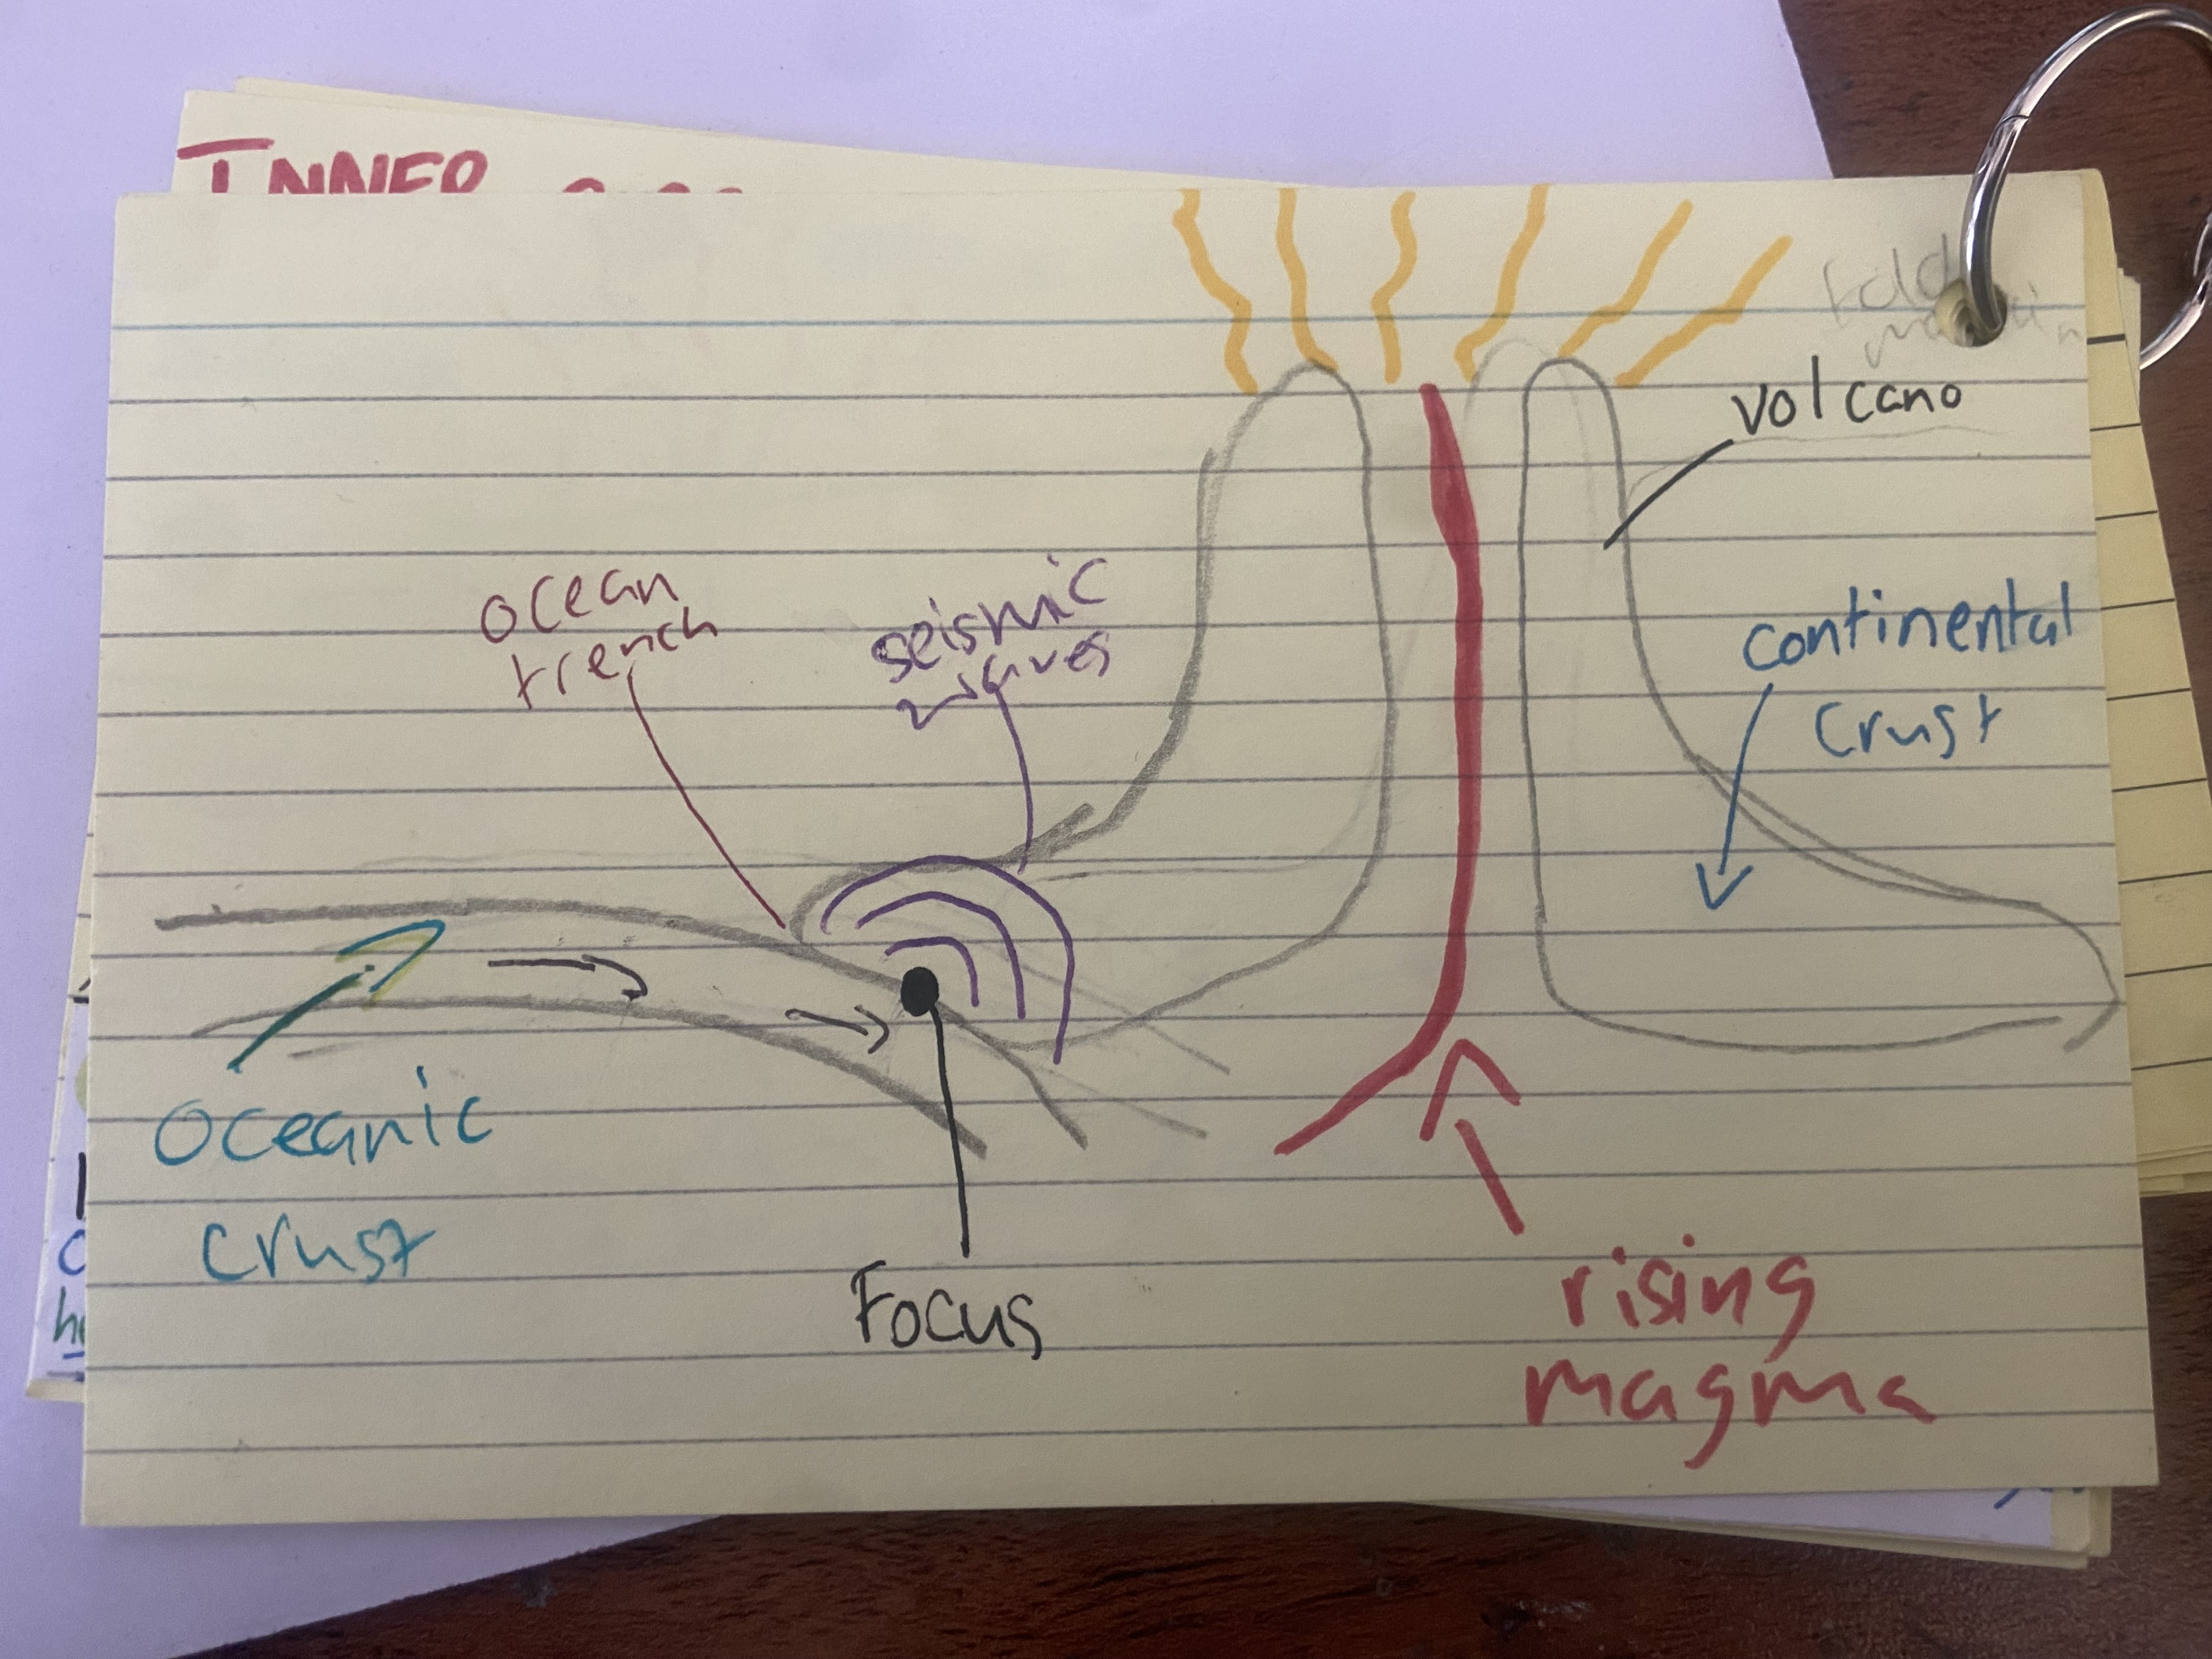 INNER
fold
volcano
ocean
trench
seismic
waves
continental
crust
oceanic
crust
Focus
rising
magma